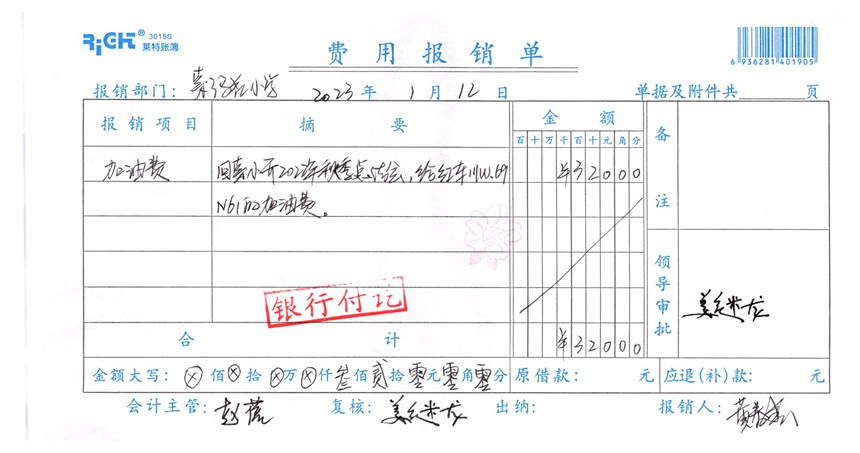 RiGHT® 3015S
莱特账簿
费用报销单
6 936281 401905
报销部门： 小学 2023年 1月12日 单据及附件共 页
报销项目 摘要 金额 备注
百十万千百十元角分
加油费 回 小开202 年秋季 会，给 车川W.69 ¥32000
N61的加油费。
银行付讫
领导审批
合计 ¥32000
金额大写：ⓧ佰ⓧ拾ⓧ万ⓧ仟叁佰贰拾零元零角零分 原借款： 元 应退(补)款： 元
会计主管：赵 复核： 龙 出纳： 报销人：黄